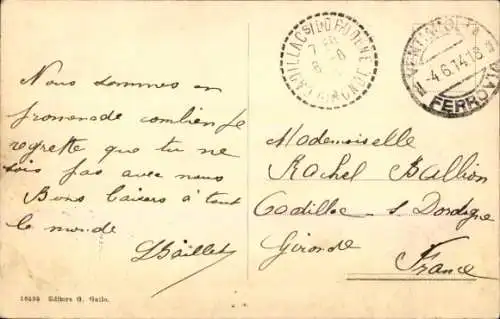 CADILLAC S/DORDOGNE
GIRONDE
VENTIMIGLIA
-4.6.14.18
FERROVIA
Nous sommes en
promenade combien Je
regrette que tu ne
sois pas avec nous
Bons baisers à tout
le monde
LBaillet
Mademoiselle
Rachel Ballion
Cadillac s Dordogne
Gironde
France
16535 Editore G. Gallo.